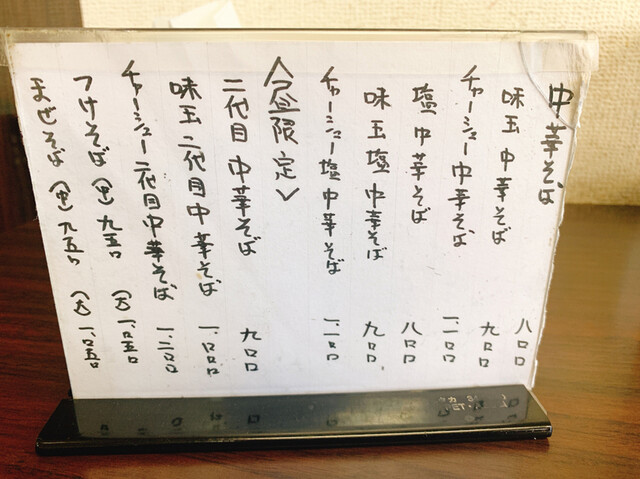 中華そば 八〇〇
味玉中華そば 九〇〇
チャーシュー中華そば 一、一〇〇
塩中華そば 八〇〇
味玉塩中華そば 九〇〇
チャーシュー塩中華そば 一、一〇〇
〈昼限定〉
二代目中華そば 九〇〇
味玉二代目中華そば 一、〇〇〇
チャーシュー二代目中華そば 一、二〇〇
つけそば (中)九五〇 (大)一、〇五〇
まぜそば (中)九五〇 (大)一、〇五〇